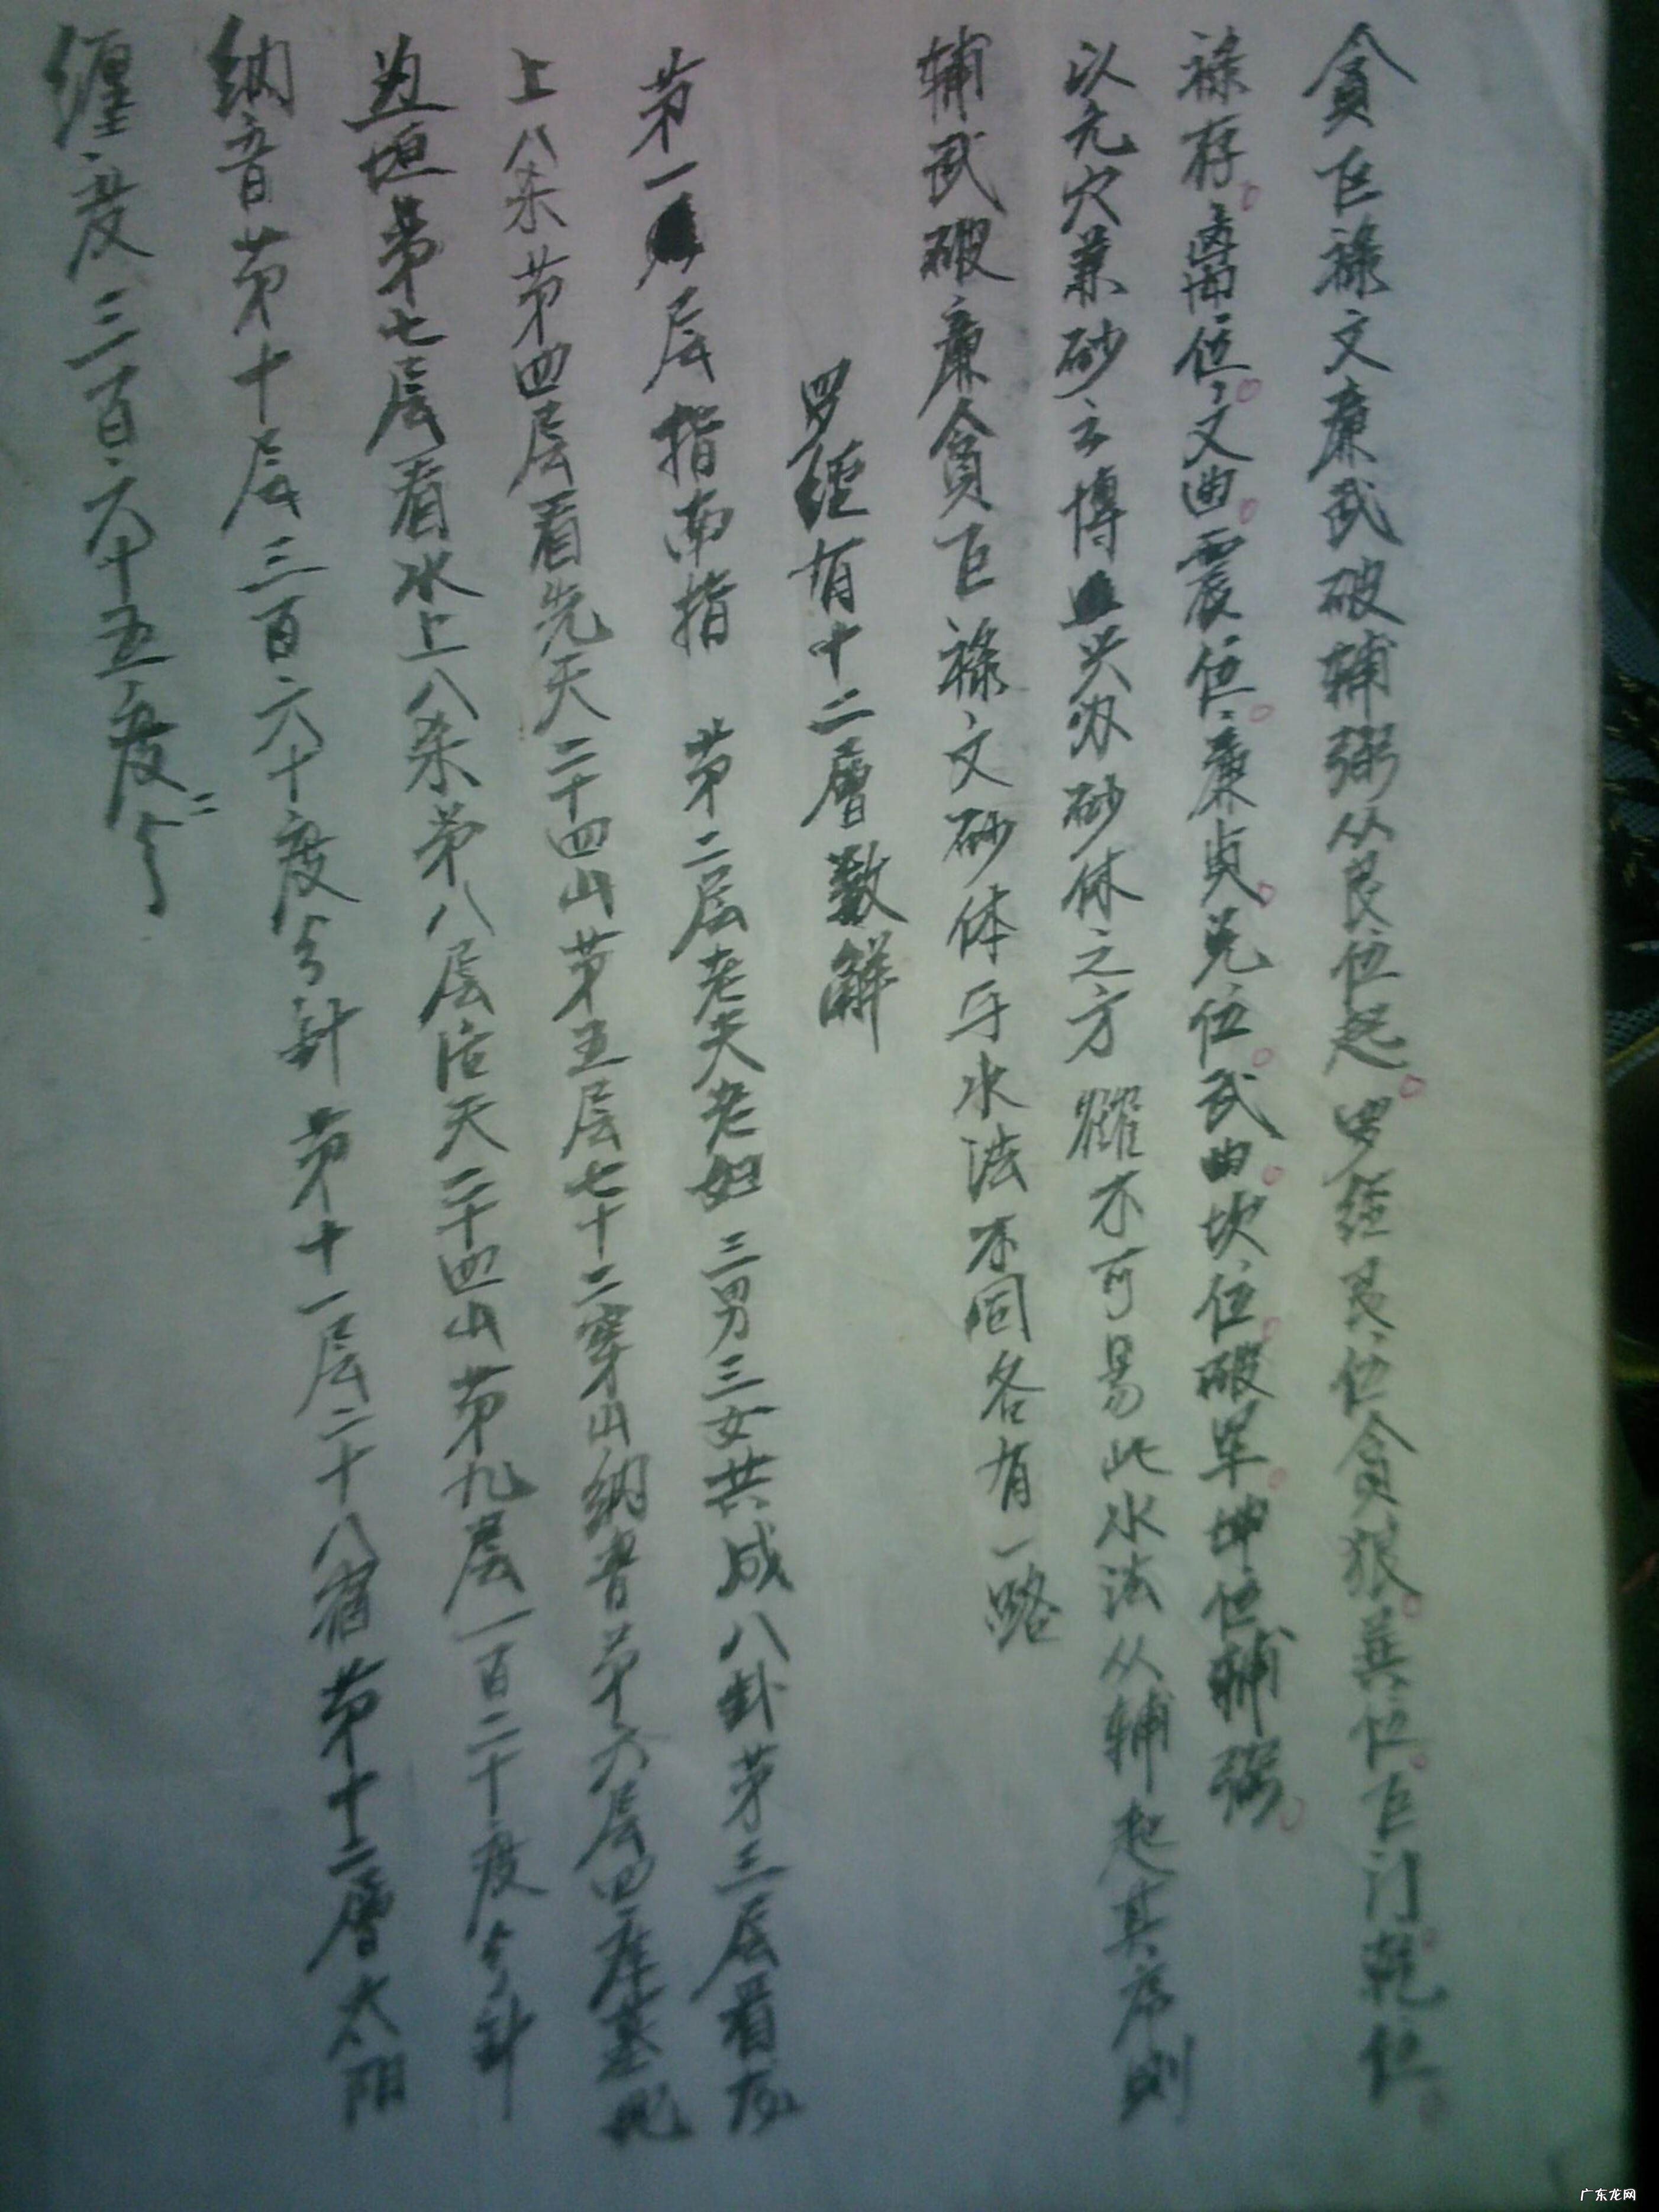 贪巨禄文廉武破辅弼从艮位起。罗经艮位贪狼。巽位。巨门。乾位。
禄存。离位。文曲。震位。廉贞。兑位。武曲。坎位。破军。坤位辅弼。
以元穴兼砂之博 兴水砂体之方 不可易此水法从辅起其序则
辅武破廉贪巨禄文砂体与水法不同各有一路
罗经有十二層数解
第一层指南指 第二层老夫老妇三男三女共成八卦第三层看龙
上八杀第四层看先天二十四山第五层七十二穿山纳音第六层四库墓
垣第七层看水上八杀第八层后天二十四山第九层一百二十度分针
纳音第十层三百六十度分针 第十一层二十八宿第十二層太阳
缠度三百六十五度
广东龙网